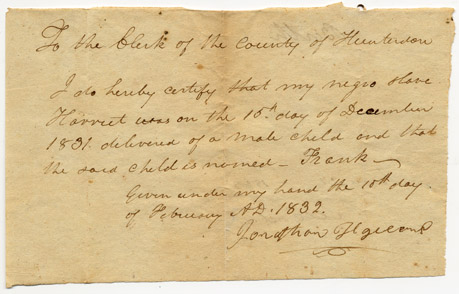 To the Clerk of the County of Hunterdon
I do hereby certify that my negro slave
Harriet was on the 10th day of December
1831 delivered of a male child and that
the said child is named – Frank
Given under my hand the 10th day
of February A.D. 1832.
Jonathan